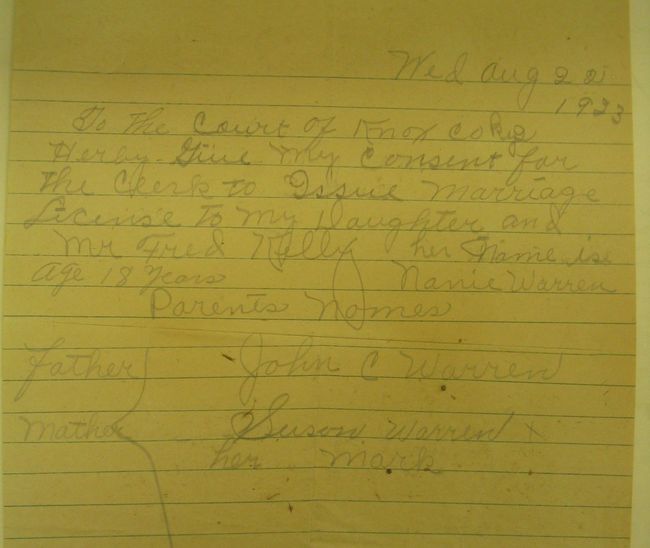 Wed Aug 22
1923
To The Court of Knox Co Ky
Herby Give My Consent for
The Clerk to Issue Marriage
License To My Daughter and
Mr Fred Kelly her Name is
Age 18 years Nanie Warren
Parents Names
father John C Warren
Mother Suson Warren X
her mark